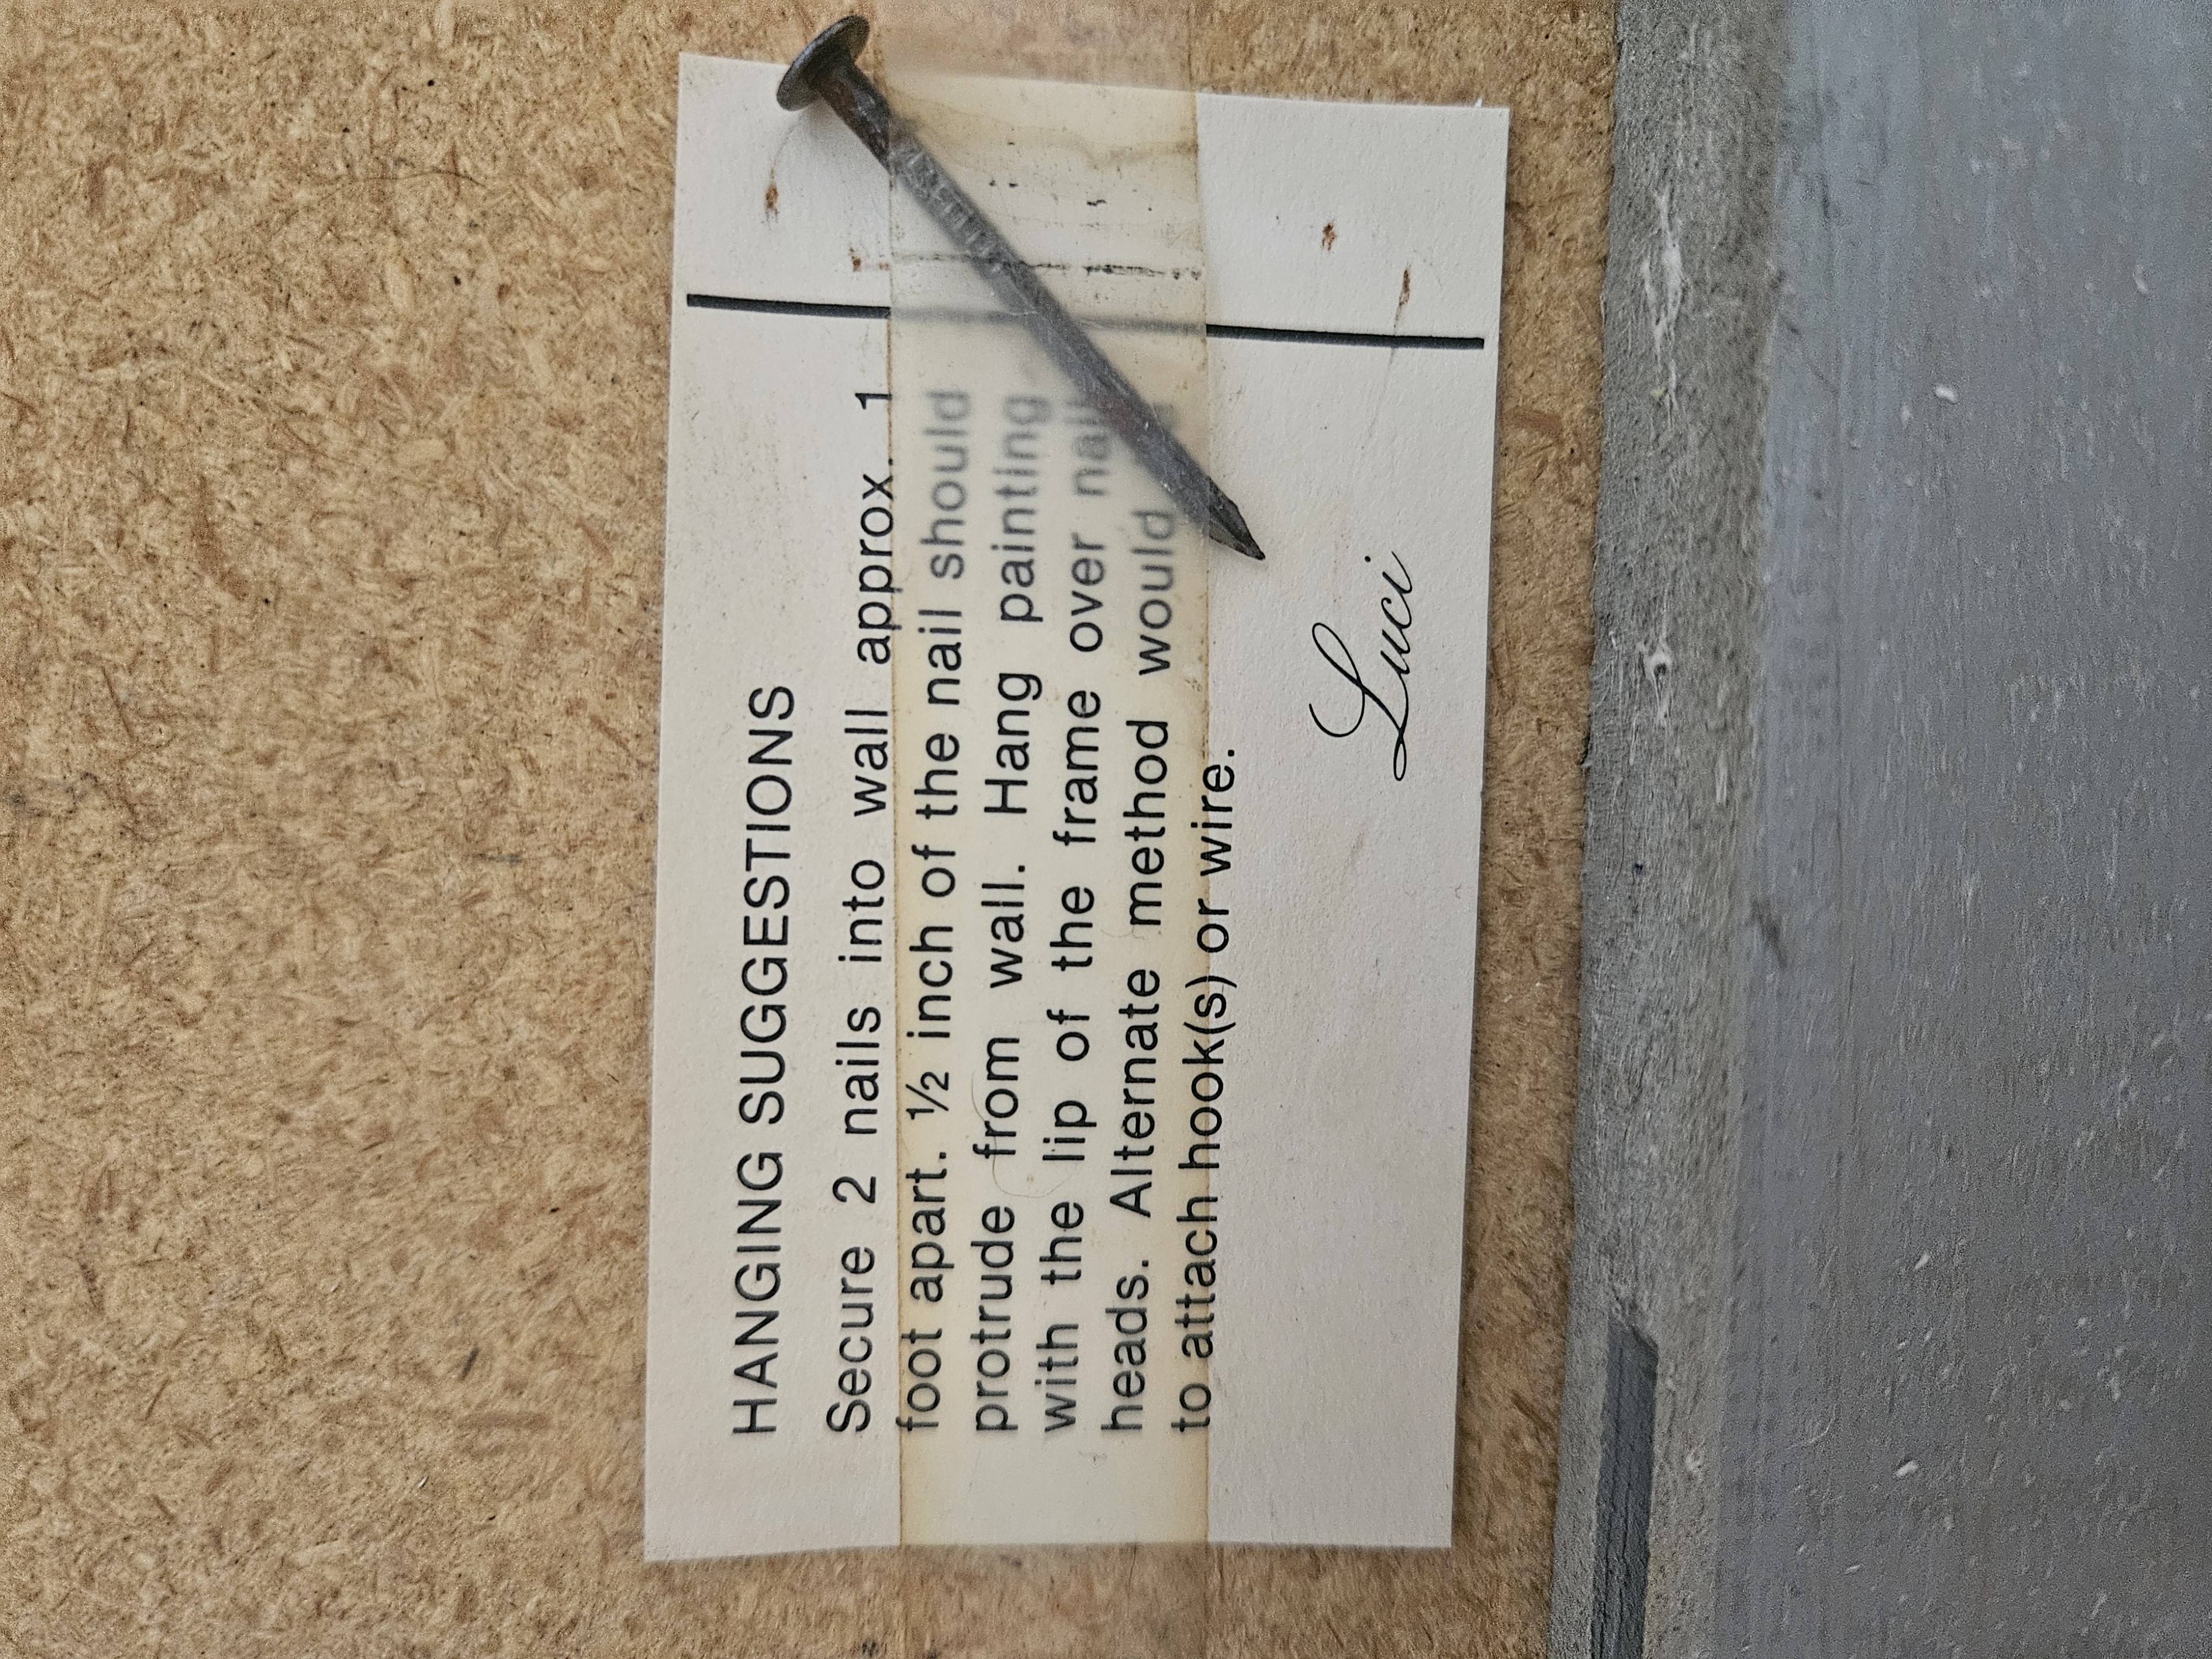 HANGING SUGGESTIONS
Secure 2 nails into wall approx. 1
foot apart. ½ inch of the nail should
protrude from wall. Hang painting
with the lip of the frame over nail
heads. Alternate method would
to attach hook(s) or wire.
Luci